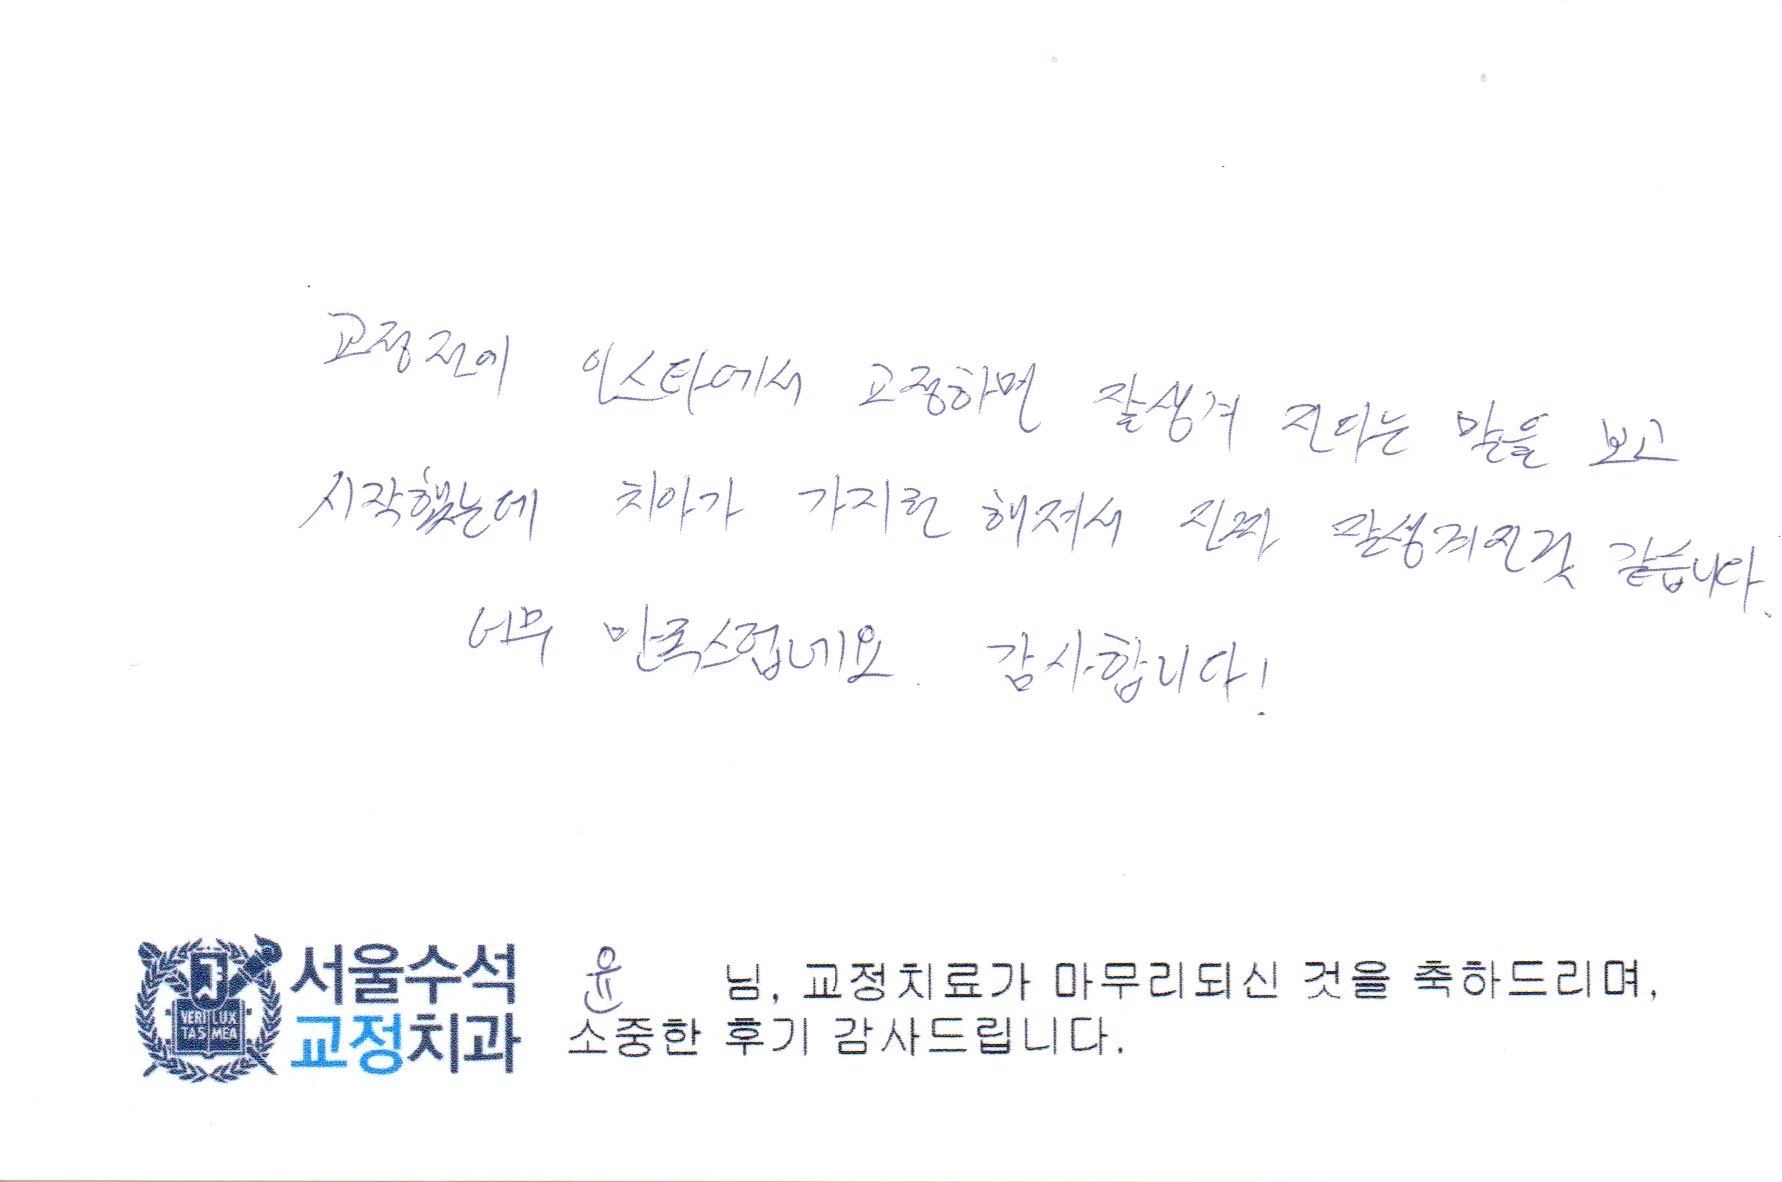 교정전에 인스타에서 교정하면 잘생겨 진다는 말을 보고
시작했는데 치아가 가지런 해져서 진짜 잘생겨진것 같습니다.
너무 만족스럽네요. 감사합니다!
서울수석
교정치과
VERI LUX
TAS MEA
윤 님, 교정치료가 마무리되신 것을 축하드리며,
소중한 후기 감사드립니다.